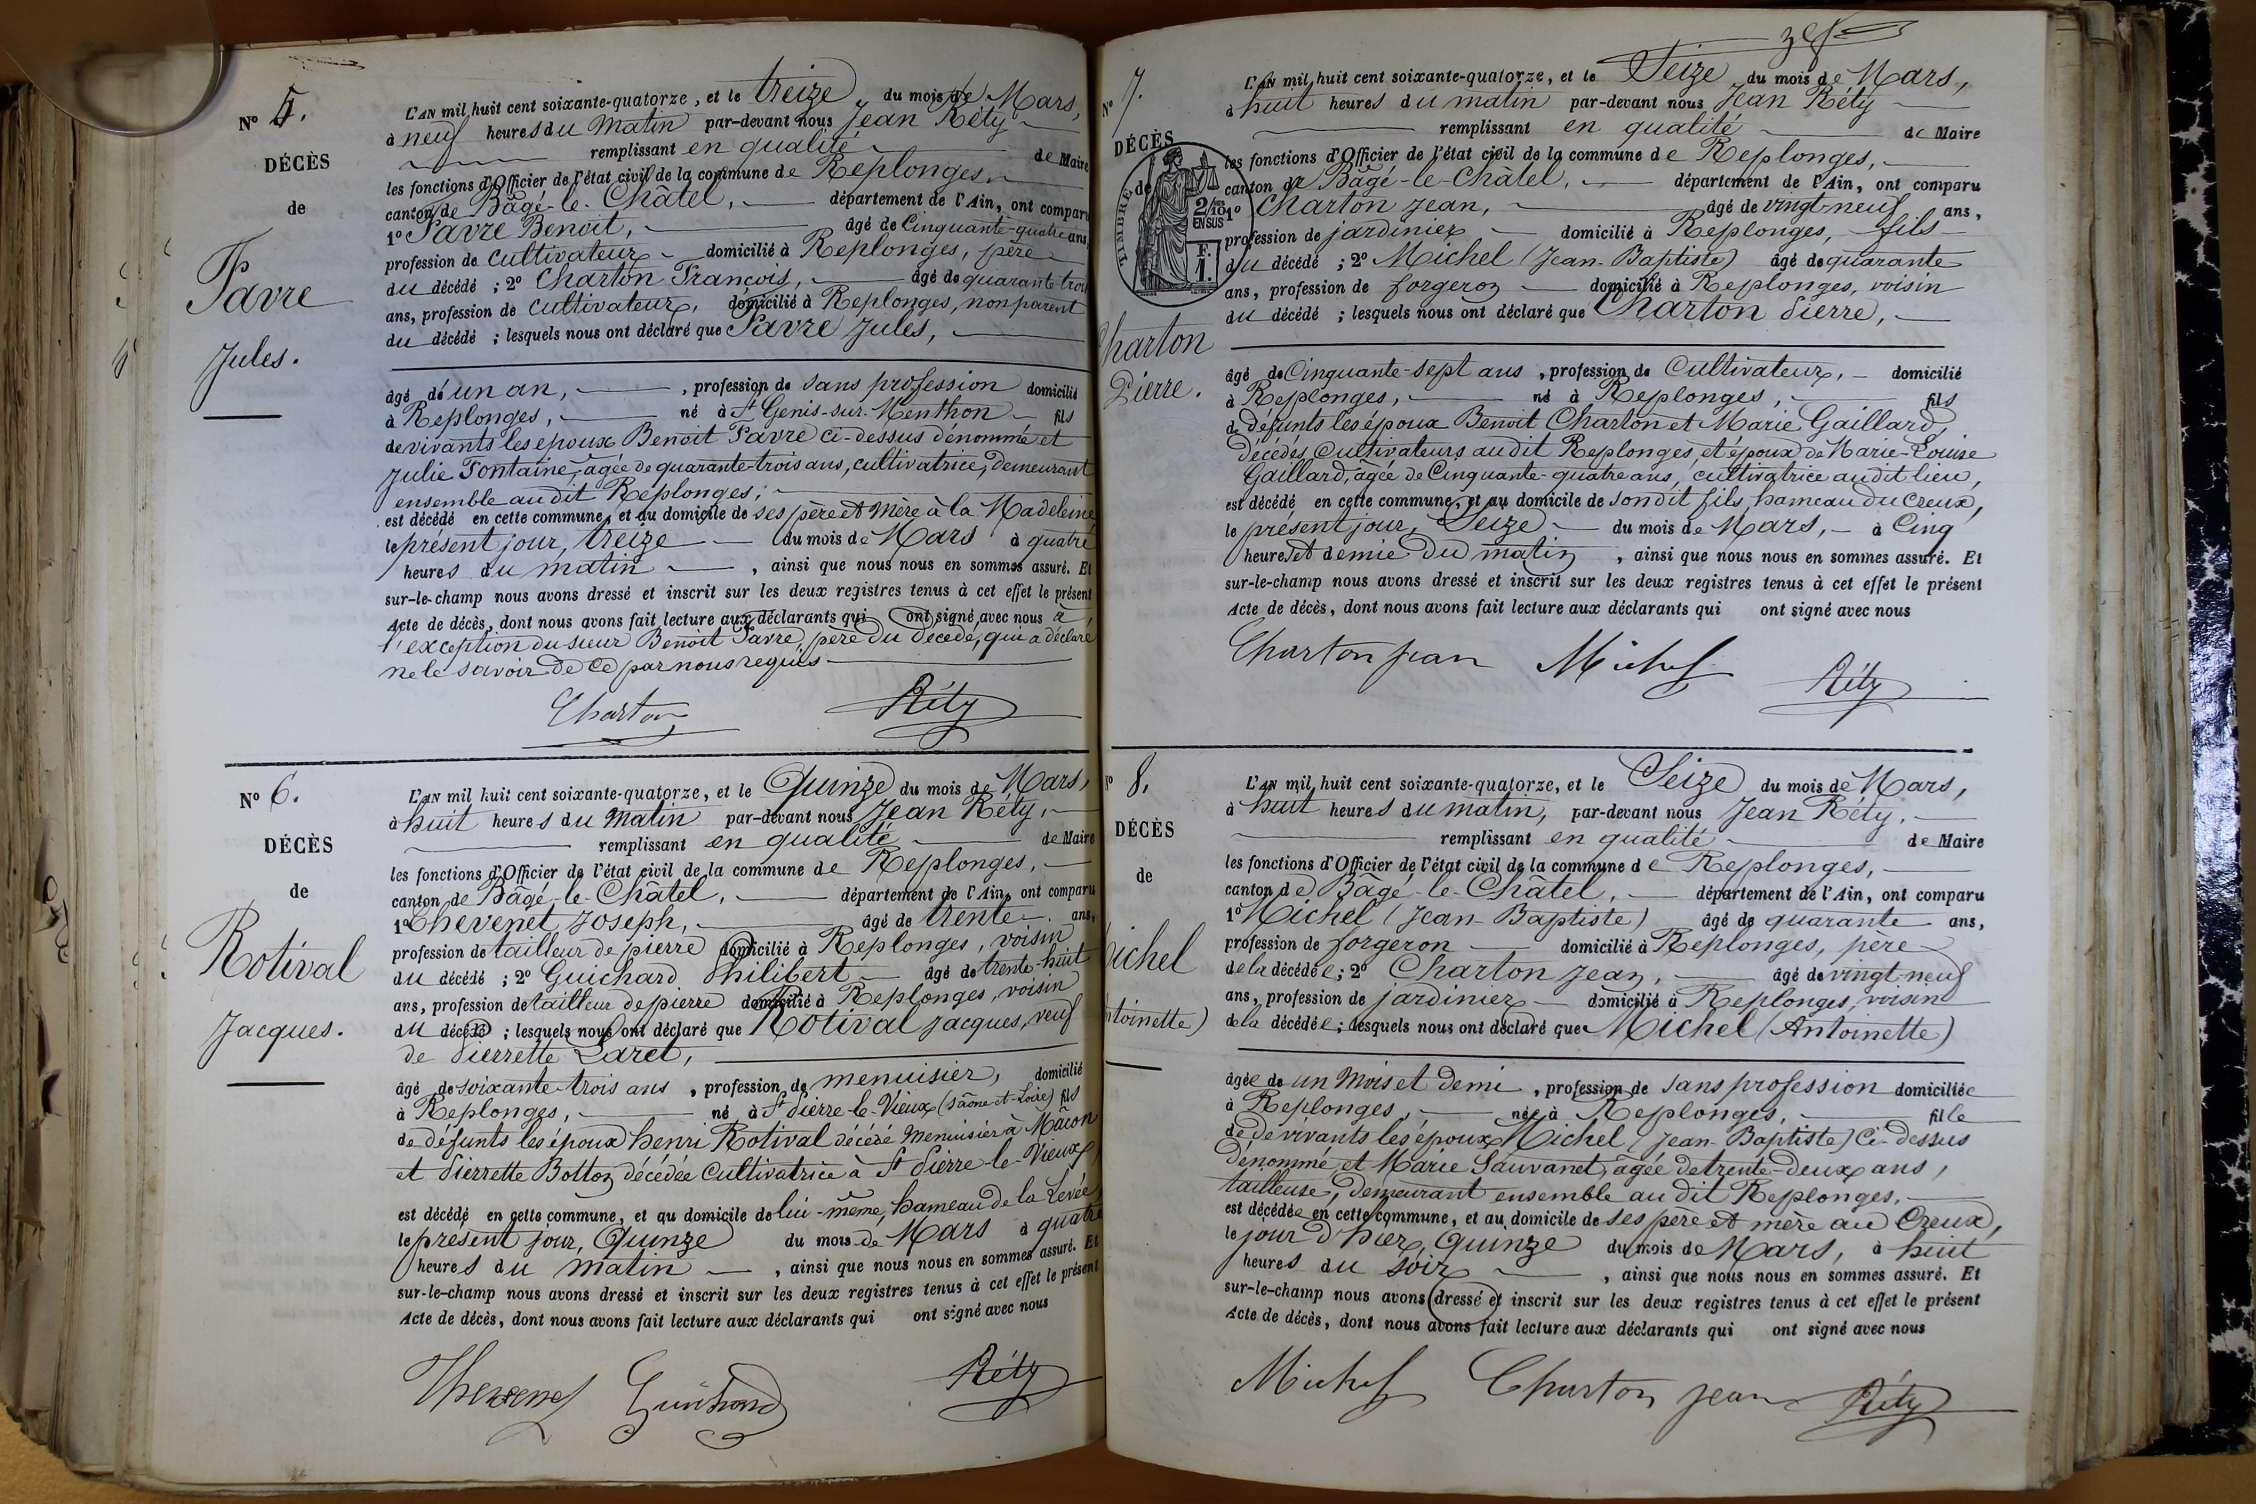 N° 5.
DÉCÈS
de
Favre
Jules.
L'AN mil huit cent soixante-quatorze, et le treize du mois de Mars,
à neuf heures du matin par-devant nous Jean Réty
remplissant en qualité de Maire
les fonctions d'Officier de l'état civil de la commune de Replonges,
canton de Bâgé-le-Châtel, département de l'Ain, ont comparu
1° Favre Benoit, âgé de Cinquante-quatre ans,
profession de cultivateur domicilié à Replonges, père
du décédé ; 2° Charton François, âgé de quarante-trois
ans, profession de cultivateur, domicilié à Replonges, non parent
du décédé ; lesquels nous ont déclaré que Favre Jules,
âgé de un an, , profession de sans profession domicilié
à Replonges, né à St Genis-sur-Menthon fils
de vivants les époux Benoit Favre ci-dessus dénommé et
Julie Fontaine, âgée de quarante-trois ans, cultivatrice, demeurant
ensemble au dit Replonges;
est décédé en cette commune, et au domicile de ses père et mère à la Madeleine
le présent jour, treize du mois de Mars à quatre
heures du matin , ainsi que nous nous en sommes assuré. Et
sur-le-champ nous avons dressé et inscrit sur les deux registres tenus à cet effet le présent
Acte de décès, dont nous avons fait lecture aux déclarants qui ont signé avec nous à
l'exception du sieur Benoit Favre, père du décédé, qui a déclaré
ne le savoir de ce par nous requis
Charton Réty
N° 6.
DÉCÈS
de
Rotival
Jacques.
L'AN mil huit cent soixante-quatorze, et le Quinze du mois de Mars,
à huit heures du matin par-devant nous Jean Réty,
remplissant en qualité de Maire
les fonctions d'Officier de l'état civil de la commune de Replonges,
canton de Bâgé-le-Châtel, département de l'Ain, ont comparu
1° Chevenet Joseph, âgé de trente ans,
profession de tailleur de pierre domicilié à Replonges, voisin
du décédé ; 2° Guichard Philibert âgé de trente-huit
ans, profession de tailleur de pierre domicilié à Replonges, voisin
du décédé ; lesquels nous ont déclaré que Rotival Jacques, veuf
de Pierrette Laret,
âgé de soixante-trois ans , profession de menuisier, domicilié
à Replonges, né à St Pierre-le-Vieux (Saône-et-Loire) fils
de défunts les époux henri Rotival décédé menuisier à Mâcon
et Pierrette Botton décédée cultivatrice à St Pierre-le-Vieux,
est décédé en cette commune, et au domicile de lui-même, hameau de la Levée,
le présent jour, Quinze du mois de Mars à quatre
heures du matin , ainsi que nous nous en sommes assuré. Et
sur-le-champ nous avons dressé et inscrit sur les deux registres tenus à cet effet le présent
Acte de décès, dont nous avons fait lecture aux déclarants qui ont signé avec nous
Guichard Réty
N° 7.
DÉCÈS
de
TIMBRE
2/10 EN SUS
F. 1.
Charton
Pierre.
L'AN mil huit cent soixante-quatorze, et le Seize du mois de Mars,
à huit heures du matin par-devant nous Jean Réty
remplissant en qualité de Maire
les fonctions d'Officier de l'état civil de la commune de Replonges,
canton de Bâgé-le-Châtel, département de l'Ain, ont comparu
1° Charton Jean, âgé de vingt-neuf ans,
profession de jardinier domicilié à Replonges, fils
du décédé ; 2° Michel (Jean-Baptiste) âgé de quarante
ans, profession de forgeron domicilié à Replonges, voisin
du décédé ; lesquels nous ont déclaré que Charton Pierre,
âgé de Cinquante-sept ans , profession de Cultivateur, domicilié
à Replonges, né à Replonges, fils
de défunts les époux Benoit Charton et Marie Gaillard,
décédés, Cultivateurs au dit Replonges, et époux de Marie-Louise
Gaillard, âgée de Cinquante-quatre ans, cultivatrice au dit lieu,
est décédé en cette commune, et au domicile de son dit fils, hameau du Creux,
le présent jour, Seize du mois de Mars, à Cinq
heures et demie du matin , ainsi que nous nous en sommes assuré. Et
sur-le-champ nous avons dressé et inscrit sur les deux registres tenus à cet effet le présent
Acte de décès, dont nous avons fait lecture aux déclarants qui ont signé avec nous
Charton jean Michel Réty
N° 8.
DÉCÈS
de
Michel
(Antoinette)
L'AN mil huit cent soixante-quatorze, et le Seize du mois de Mars,
à huit heures du matin, par-devant nous Jean Réty,
remplissant en qualité de Maire
les fonctions d'Officier de l'état civil de la commune de Replonges,
canton de Bâgé-le-Châtel, département de l'Ain, ont comparu
1° Michel (Jean-Baptiste) âgé de quarante ans,
profession de forgeron domicilié à Replonges, père
de la décédée ; 2° Charton Jean, âgé de vingt-neuf
ans, profession de jardinier domicilié à Replonges, voisin
de la décédée ; lesquels nous ont déclaré que Michel (Antoinette)
âgée de un mois et demi , profession de sans profession domiciliée
à Replonges, née à Replonges, fille
de de vivants les époux Michel (Jean-Baptiste) ci-dessus
dénommé et Marie Sauvanet, âgée de trente-deux ans,
tailleuse, demeurant ensemble au dit Replonges,
est décédée en cette commune, et au domicile de ses père et mère au Creux,
le jour d'hier, Quinze du mois de Mars, à huit
heures du soir , ainsi que nous nous en sommes assuré. Et
sur-le-champ nous avons dressé et inscrit sur les deux registres tenus à cet effet le présent
Acte de décès, dont nous avons fait lecture aux déclarants qui ont signé avec nous
Michel Charton jean Réty